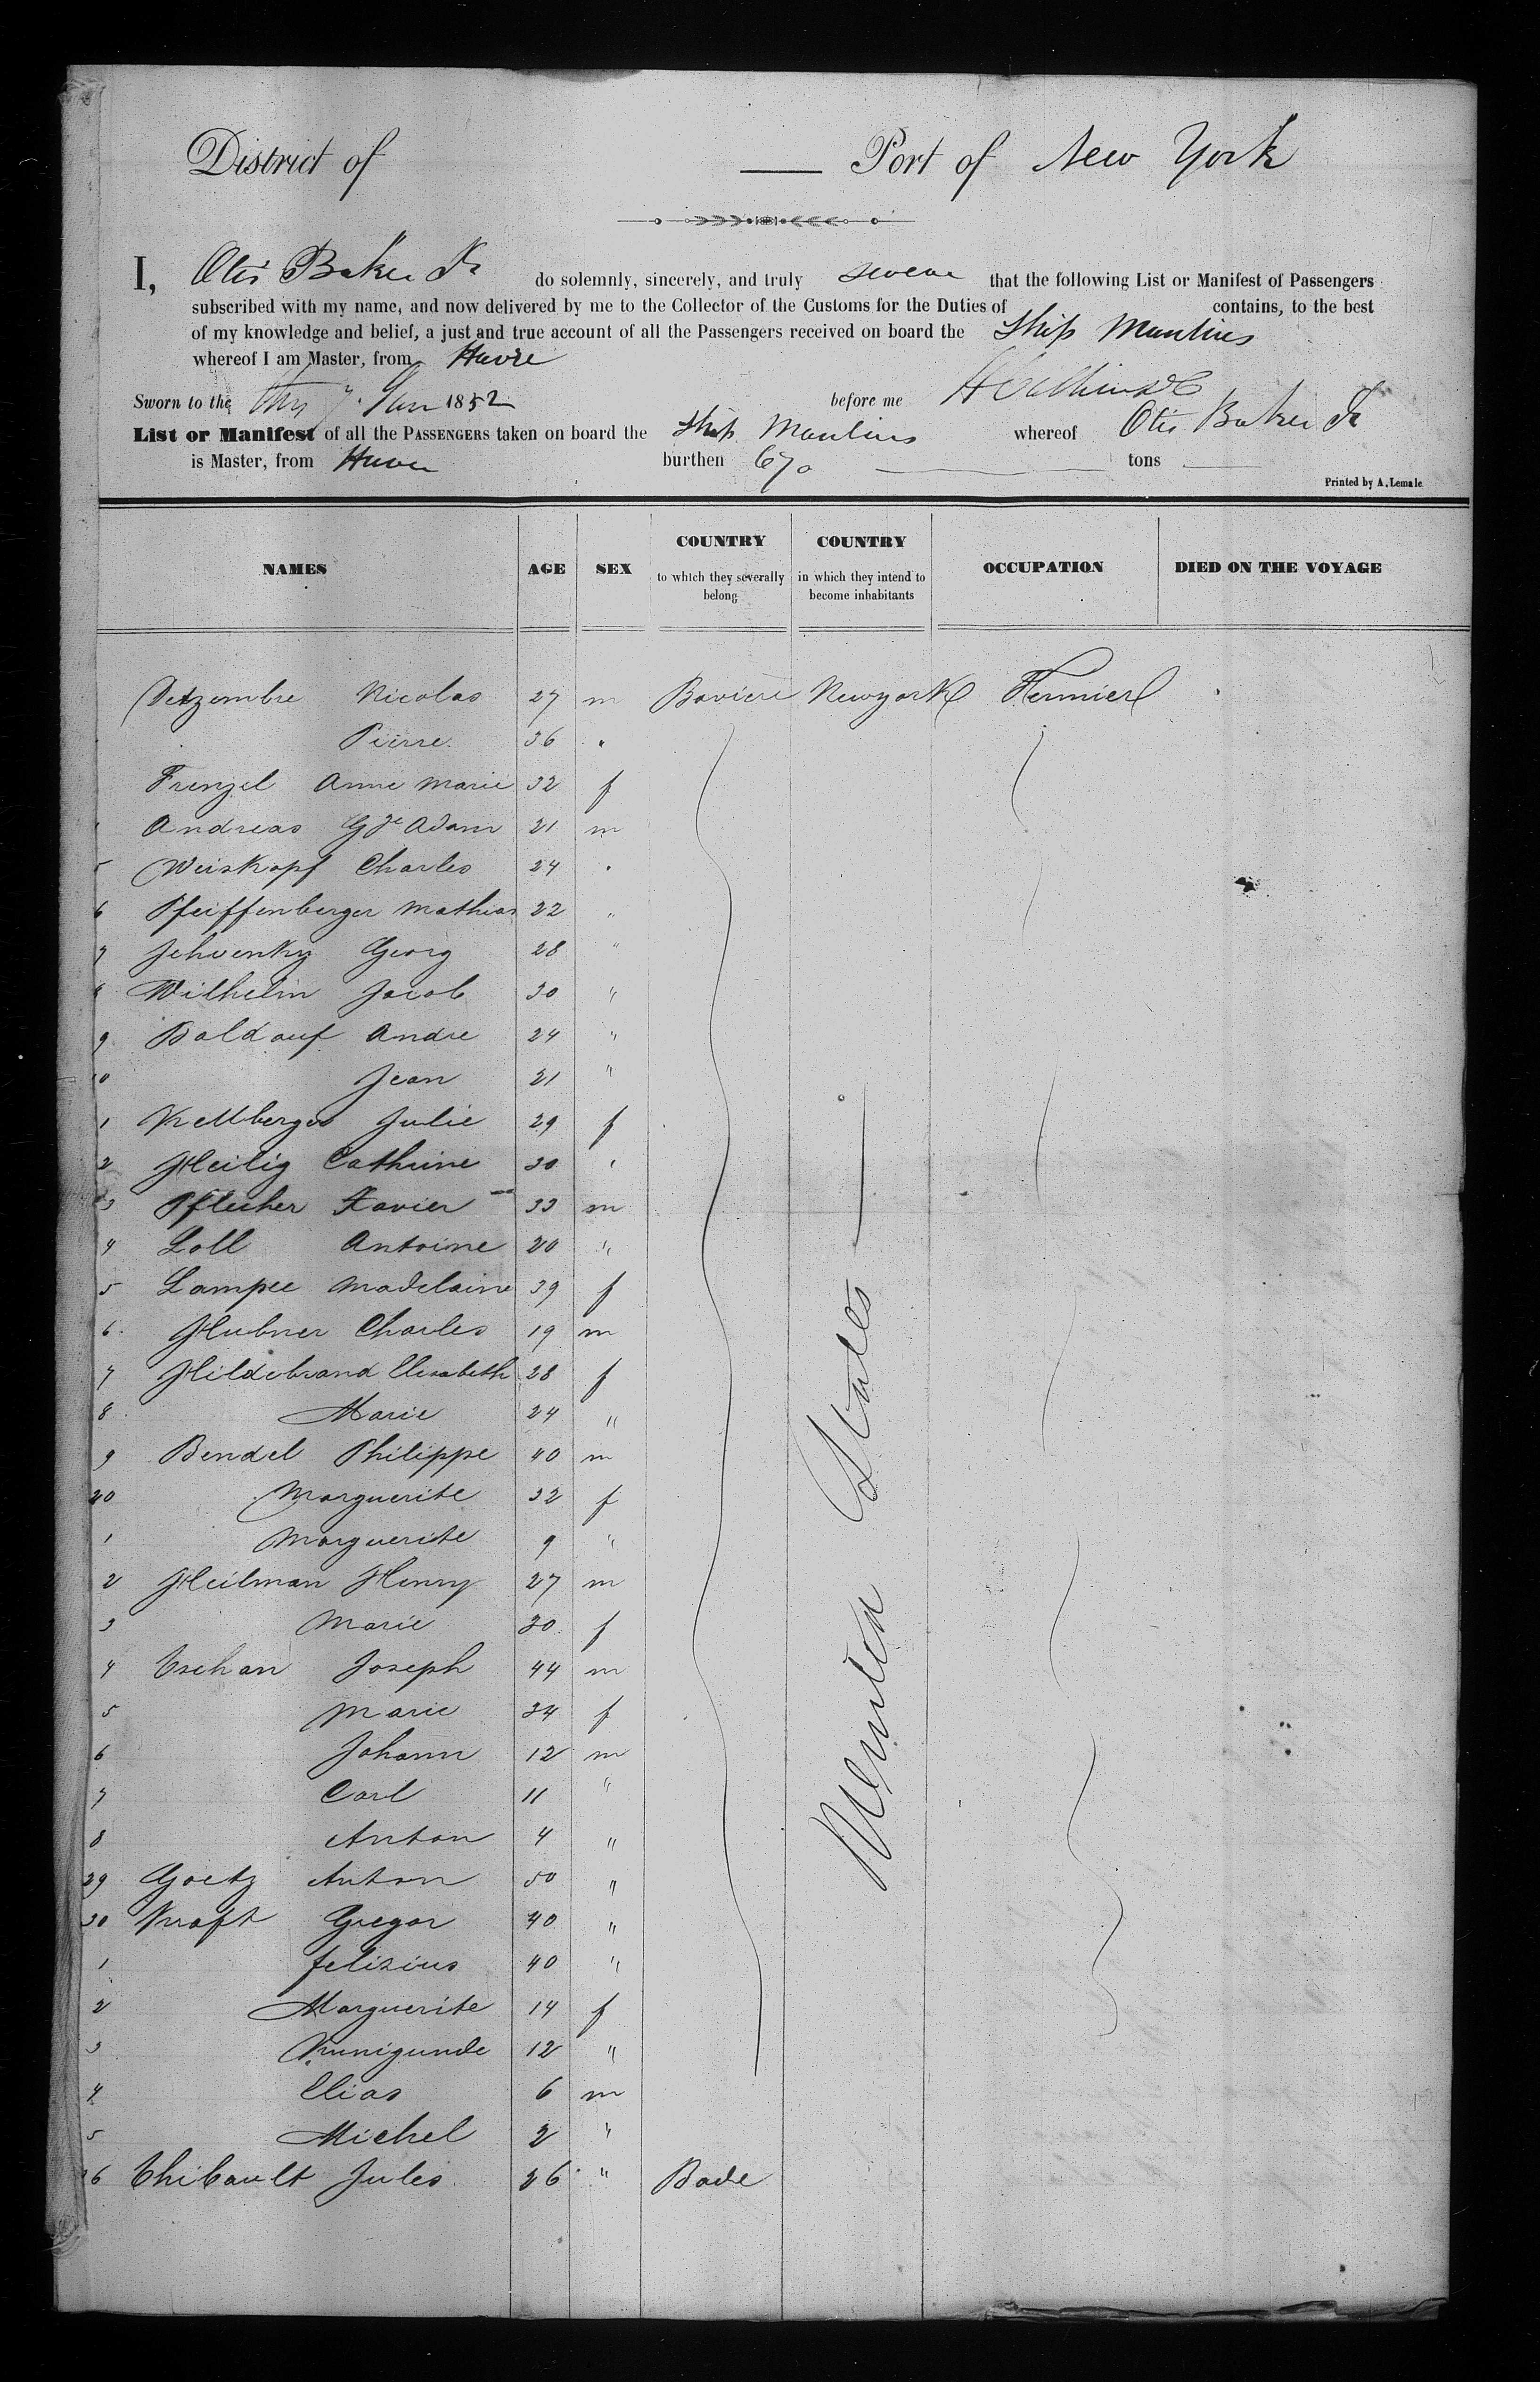 District of ___ Port of New York
I, Otis Baker Jr do solemnly, sincerely, and truly swear that the following List or Manifest of Passengers
subscribed with my name, and now delivered by me to the Collector of the Customs for the Duties of contains, to the best
of my knowledge and belief, a just and true account of all the Passengers received on board the Ship Manlius
whereof I am Master, from Havre
Sworn to the this 7 Jan 1852 before me
List or Manifest of all the PASSENGERS taken on board the Ship Manlius whereof Otis Baker Jr
is Master, from Havre burthen 670 tons
Printed by A. Lemale
NAMES AGE SEX COUNTRY to which they severally belong COUNTRY in which they intend to become inhabitants OCCUPATION DIED ON THE VOYAGE
Detzembre Nicolas 27 m Baviere Newyork Fermier
Pierre 36 "
Frenzel Anne Marie 32 f
Andreas Adam 21 m
5 Weiskopf Charles 24 "
6 Pfeiffenberger Mathias 22 "
7 Georg 28 "
8 Wilhelm Jacob 30 "
9 Baldauf Andre 24 "
10 Jean 21 "
1 Julie 29 f
2 Heilig Cathrine 30 "
3 Xavier 33 m
4 Loll Antoine 20 "
5 Lampee Madelaine 39 f
6 Hubner Charles 19 m
7 Hildebrand Elisabeth 28 f
8 Marie 24 "
9 Bendel Philippe 40 m
20 Marguerite 32 f
1 Marguerite 9 "
2 Heilman Henry 27 m
3 Marie 30 f
4 Eschan Joseph 44 m
5 Marie 34 f
6 Johann 12 m
7 Carl 11 "
8 Anton 4 "
29 Goetz Anton 50 "
30 Kraft Gregor 40 "
1 felizius 40 "
2 Marguerite 14 f
3 Kunigunde 12 "
4 Elias 6 m
5 Michel 2 "
36 Thibault Jules 26 " Bade
United States